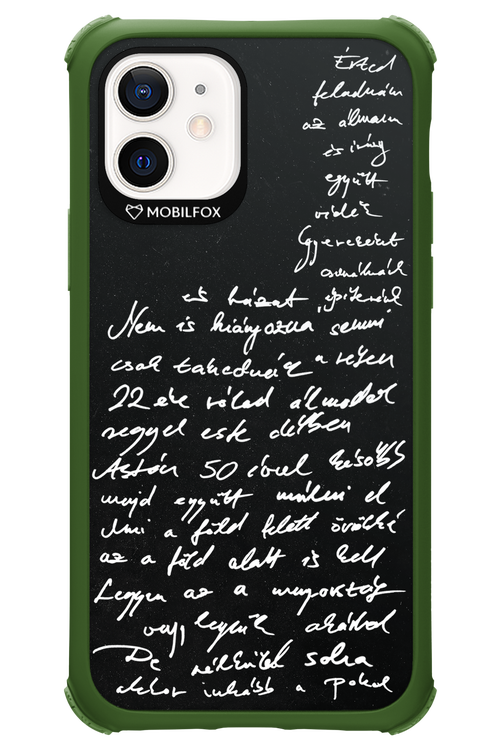 MOBILFOX
Érted
feladnám
az álmam
és így
együtt
Gyerekeket
csinálnánk
és házat építenénk
Nem is hiányozna semmi
csak takednék a részen
22 éve rólad álmodok
reggel este délben
Aztán 50 évvel később
majd együtt múlni el
Ami a föld felett örökké
az a föld alatt is kell
Legyen az a mennyország
vagy legyünk akárhol
De nélküled soha
akkor inkább a Pokol